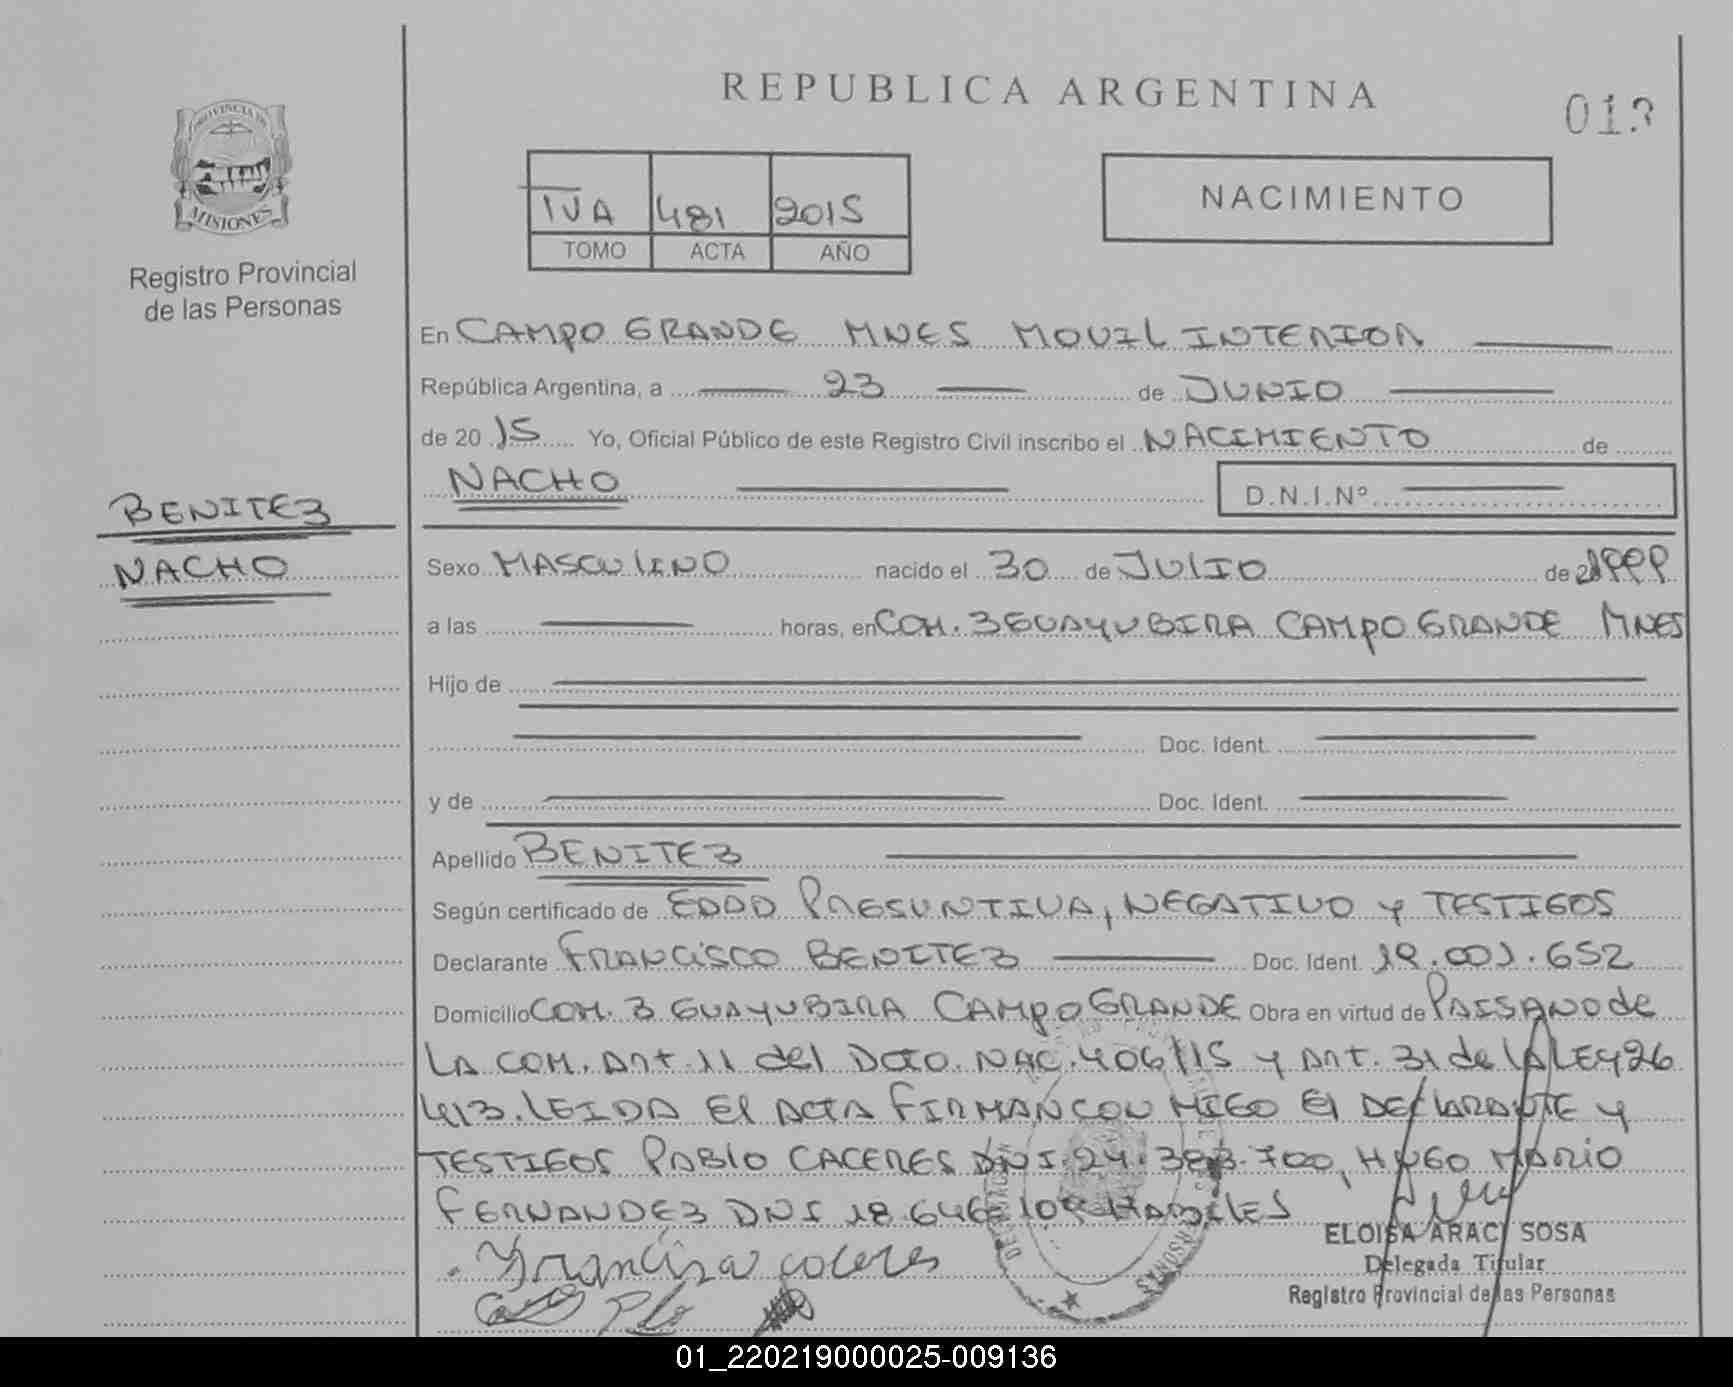 REPUBLICA ARGENTINA
013
PROVINCIA DE
MISIONES
Registro Provincial
de las Personas
IVA 481 2015
TOMO ACTA AÑO
NACIMIENTO
En CAMPO GRANDE MNES MOVIL INTERIOR
República Argentina, a 23 de JUNIO
de 20 15 Yo, Oficial Público de este Registro Civil inscribo el NACIMIENTO de
NACHO D.N.I.Nº
BENITEZ
NACHO
Sexo MASCULINO nacido el 30 de JULIO de 1999
a las horas, en COM. 3 GUAYUBIRA CAMPO GRANDE MNES
Hijo de
Doc. Ident.
y de Doc. Ident.
Apellido BENITEZ
Según certificado de EDAD PRESUNTIVA, NEGATIVO y TESTIGOS
Declarante FRANCISCO BENITEZ Doc. Ident. 19.001.652
Domicilio COM. 3 GUAYUBIRA CAMPO GRANDE Obra en virtud de PAISANO de
LA COM. Art. 11 del Dcto. NAC. 406/15 y Art. 31 de LA LEY 26
413. LEIDA El ACTA FIRMAN CON MIGO El DEClARANTE y
TESTIGOS PABlO CACERES DNI 24.383.700, HUGO MARIO
FERNANDEZ DNI 18.646.109 HABILES
ELOISA ARACI SOSA
Delegada Titular
Registro Provincial de las Personas
01_220219000025-009136